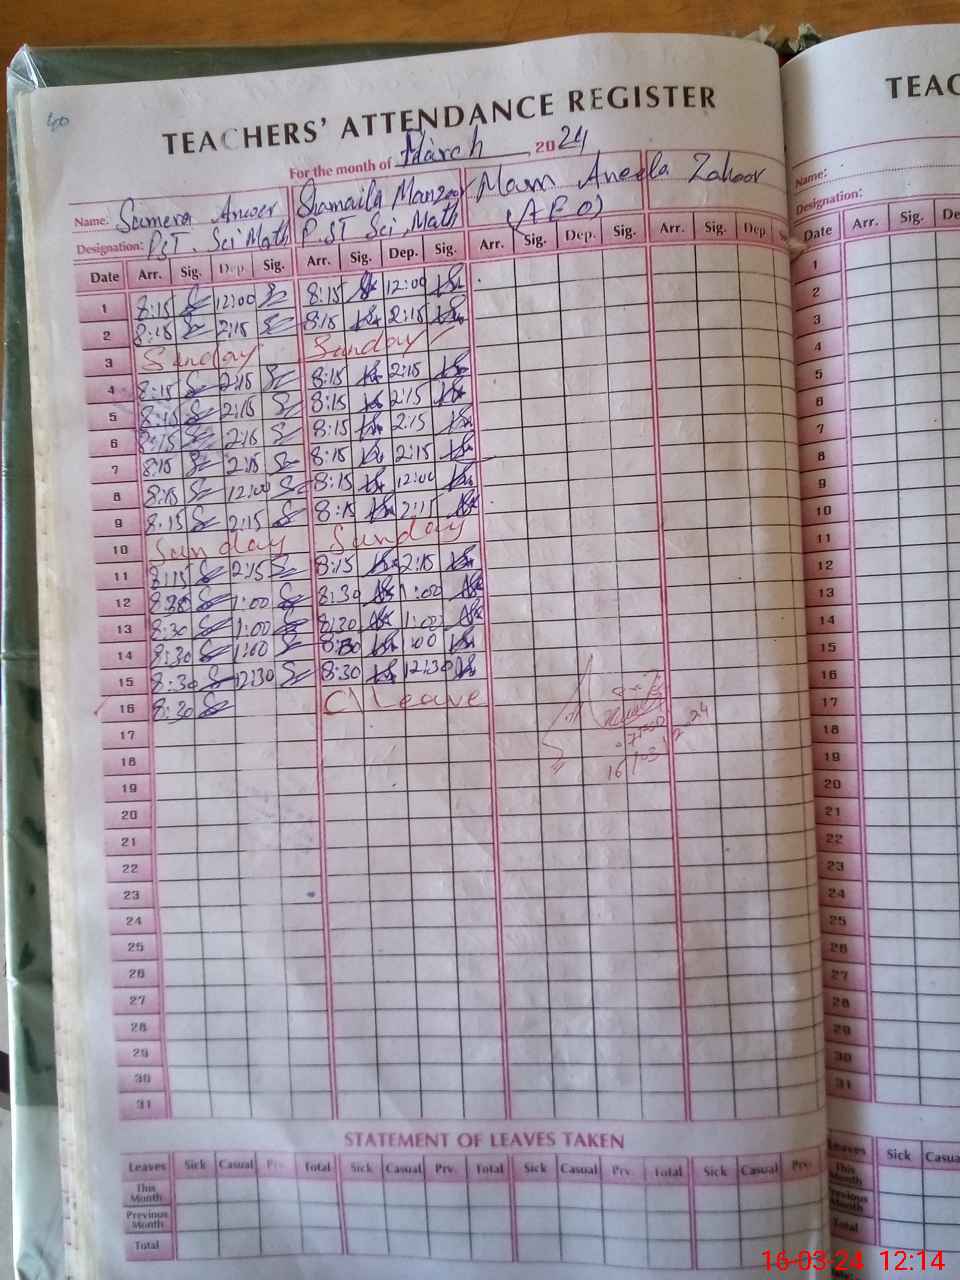 TEACHERS' ATTENDANCE REGISTER
For the month of March 2024
Name: Sumera Anwer Shamaila Manzoor Mam Aneela Zahoor
Designation: PST. Sci Math P.ST Sci Math (AEO)
Date Arr. Sig. Dep. Sig. Arr. Sig. Dep. Sig. Arr. Sig. Dep. Sig. Arr. Sig. Dep.
1 8:15 12:00 8:15 12:00
2 8:15 2:15 8:15 2:15
3 Sunday Sunday
4 8:15 2:15 8:15 2:15
5 8:15 2:15 8:15 2:15
6 8:15 2:15 8:15 2:15
7 8:15 2:15 8:15 2:15
8 8:15 12:00 8:15 12:00
9 8:15 2:15 8:15 2:15
10 Sunday Sunday
11 8:15 2:15 8:15 2:15
12 8:30 1:00 8:30 1:00
13 8:30 1:00 8:30 1:00
14 8:30 1:00 8:30 1:00
15 8:30 12:30 8:30 12:30
16 8:30 C/Leave
17
18
19
20
21
22
23
24
25
26
27
28
29
30
31
STATEMENT OF LEAVES TAKEN
Leaves Sick Casual Prv. Total Sick Casual Prv. Total Sick Casual Prv. Total Sick Casual Prv.
This Month
Previous Month
Total
TEAC
Name:
Designation:
Date Arr. Sig. De
1
2
3
4
5
6
7
8
9
10
11
12
13
14
15
16
17
18
19
20
21
22
23
24
25
26
27
28
29
30
31
Leaves Sick Casua
This Month
Previous Month
Total
16-03-24 12:14